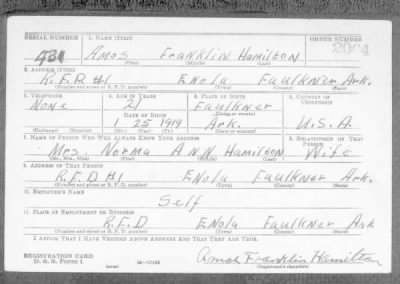 SERIAL NUMBER 1. NAME (Print) ORDER NUMBER
Amos Franklin Hamilton
(First) (Middle) (Last)
2. ADDRESS (Print)
R.F.D #1 Enola Faulkner Ark.
(Number and street or R. F. D. number) (Town) (County) (State)
3. TELEPHONE 4. AGE IN YEARS 5. PLACE OF BIRTH 6. COUNTRY OF CITIZENSHIP
None 21 Faulkner
(Town or county)
DATE OF BIRTH
25 1919 Ark. U.S.A.
(Exchange) (Number) (Mo.) (Day) (Yr.) (State or country)
7. NAME OF PERSON WHO WILL ALWAYS KNOW YOUR ADDRESS 8. RELATIONSHIP OF THAT PERSON
Mrs. Norma Ann Hamilton Wife
(Mr., Mrs., Miss) (First) (Middle) (Last)
9. ADDRESS OF THAT PERSON
R.F.D #1 Enola Faulkner Ark.
(Number and street or R. F. D. number) (Town) (County) (State)
10. EMPLOYER'S NAME
Self
11. PLACE OF EMPLOYMENT OR BUSINESS
R.F.D Enola Faulkner Ark
(Number and street or R. F. D. number) (Town) (County) (State)
I AFFIRM THAT I HAVE VERIFIED ABOVE ANSWERS AND THAT THEY ARE TRUE.
REGISTRATION CARD
D. S. S. Form 1 (over) 16—17105 Amos Franklin Hamilton
(Registrant's signature)